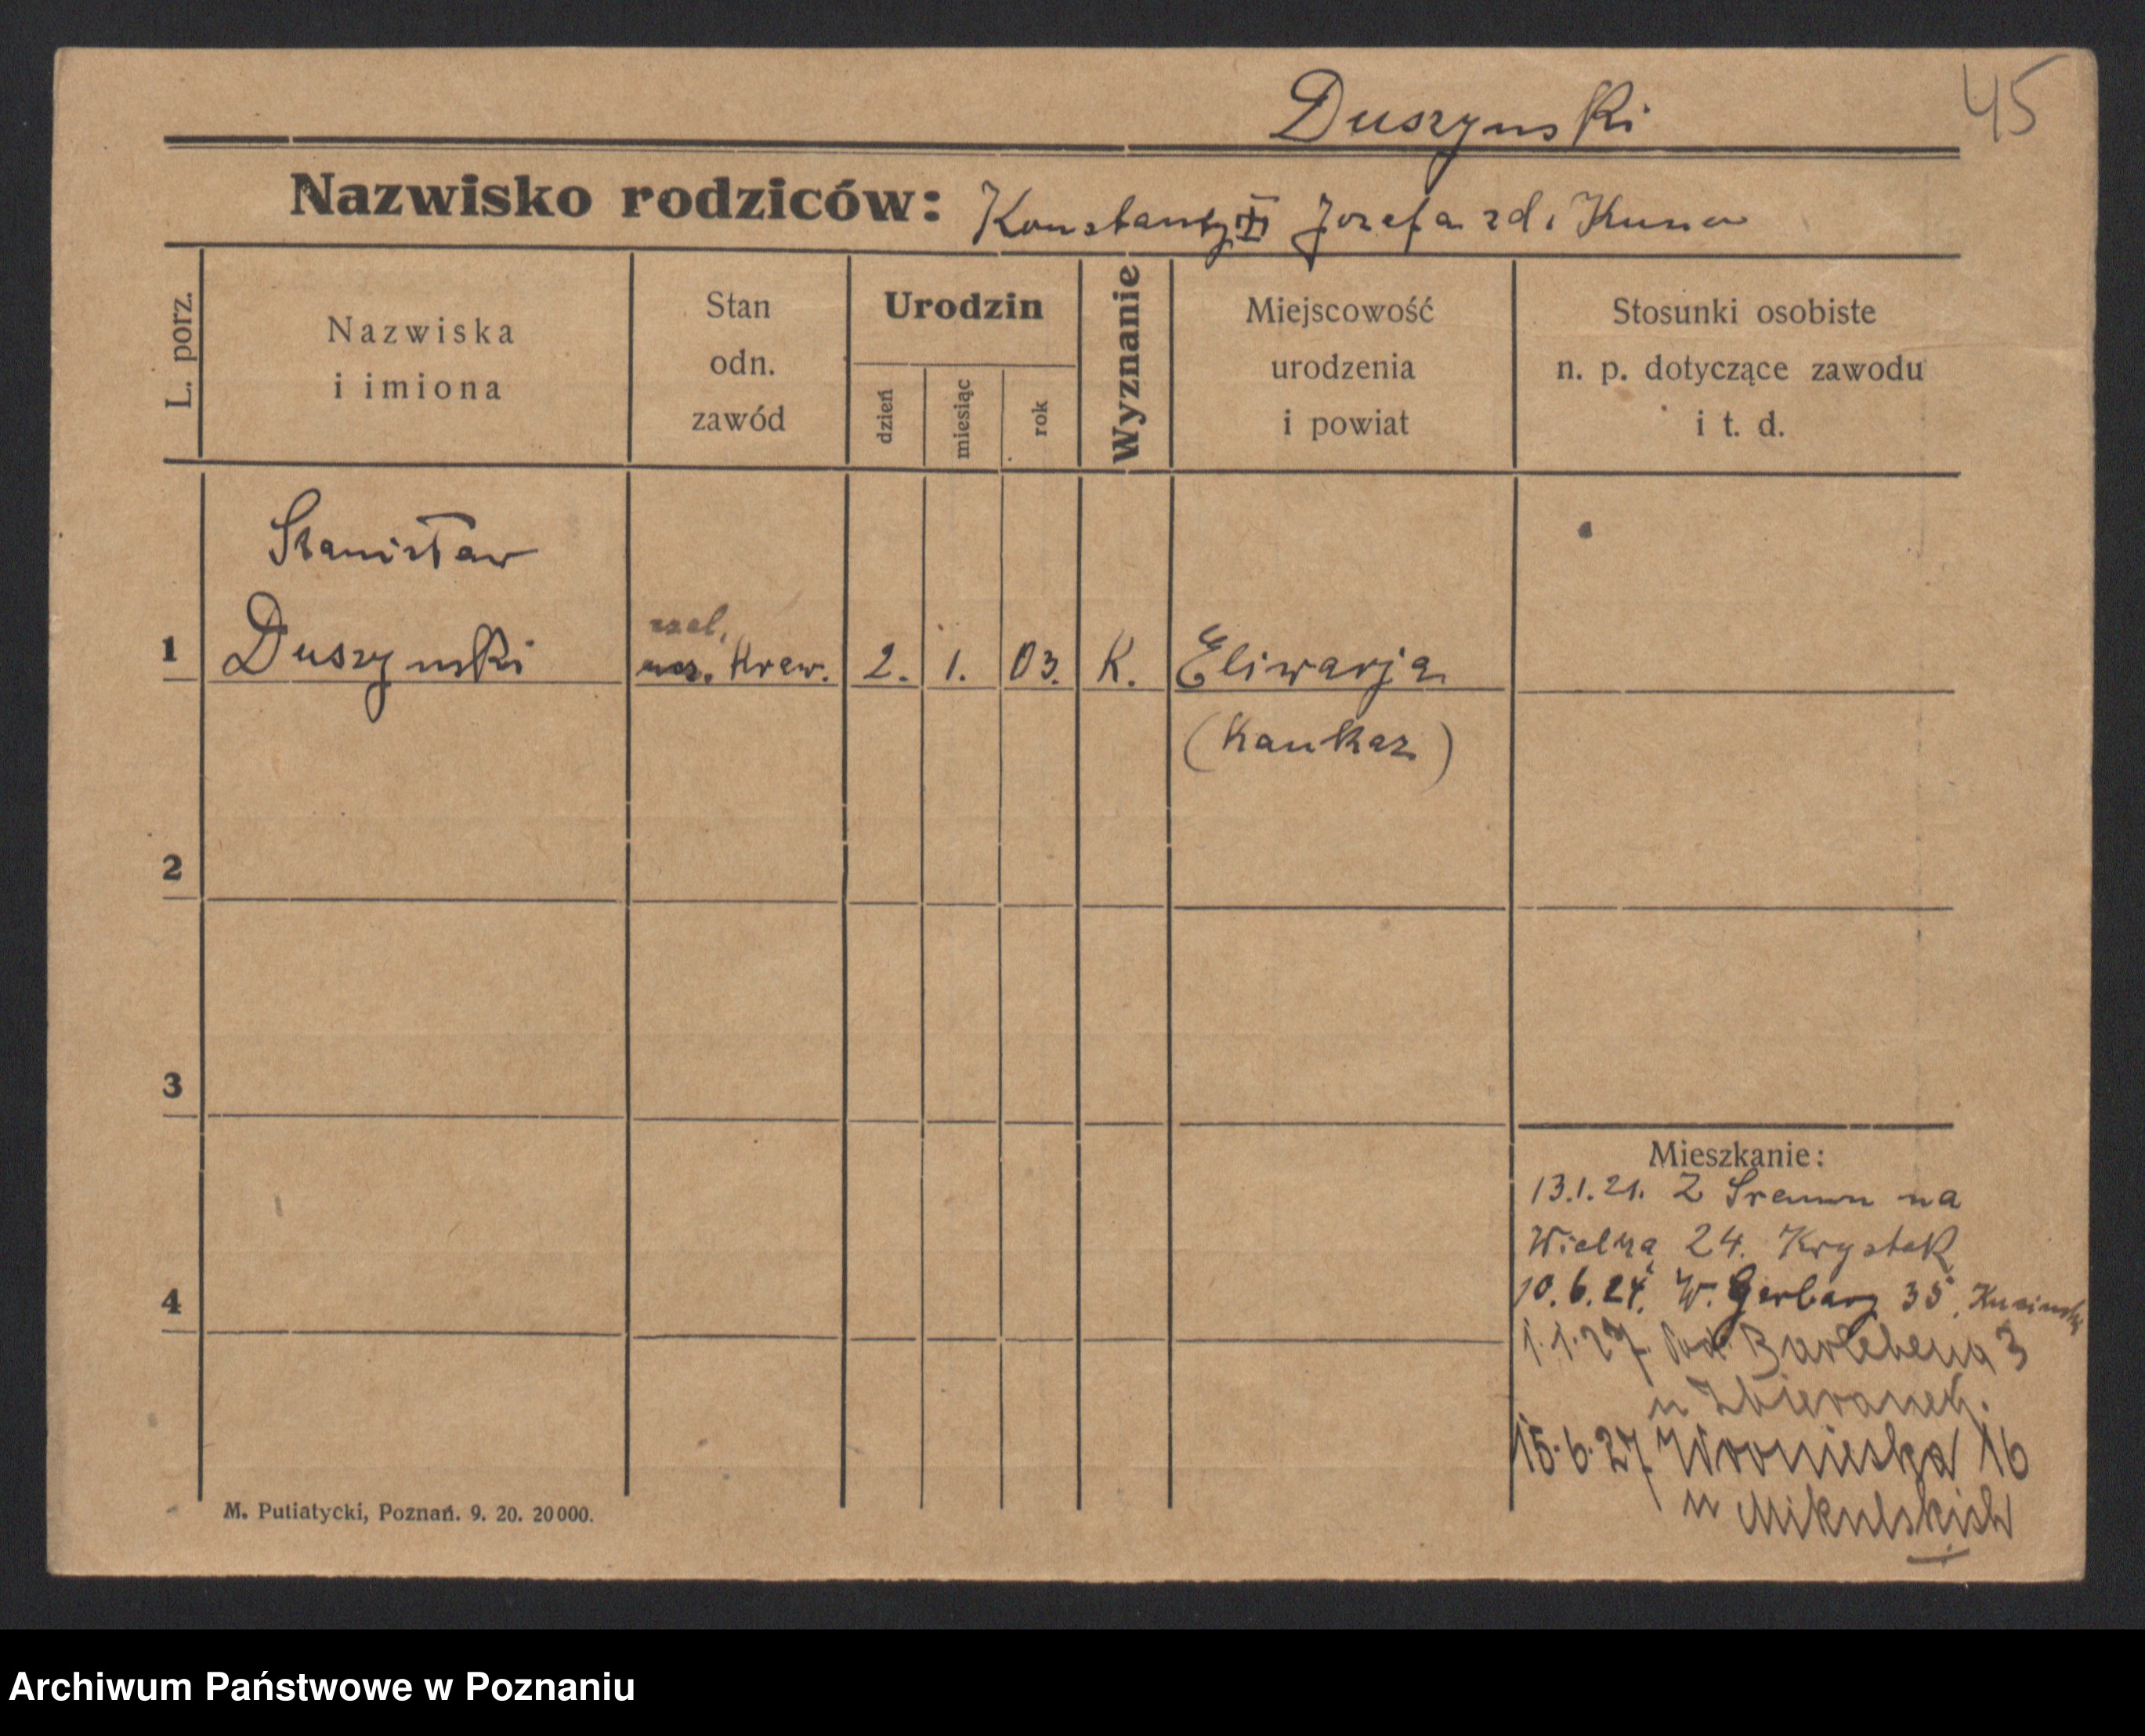 Duszynski
45
Nazwisko rodziców: Konstanty Jozefa zd. Kuna
L. porz.
Nazwiska
i imiona
Stan
odn.
zawód
Urodzin
dzień
miesiąc
rok
Wyznanie
Miejscowość
urodzenia
i powiat
Stosunki osobiste
n. p. dotyczące zawodu
i t. d.
Stanisław
czel.
1 Duszynski ucz. Kraw. 2. 1. 03. K. Eliwarja
(Kaukaz)
2
3
4
Mieszkanie:
13.1.21. Z Sremu na
Wielką 24. Krystek
10.6.24. W. Gerbary 35,
1.1.27. Barlebena 3
u
15.6.27 Wroniecka 16
u Mikulskich
M. Putiatycki, Poznań. 9. 20. 20000.
Archiwum Państwowe w Poznaniu